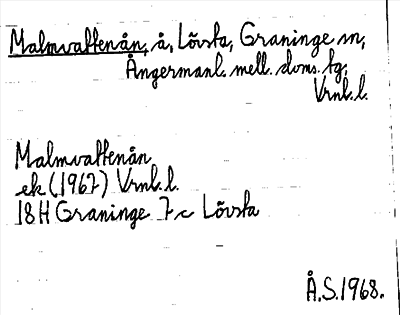 Malmvattenån, å, Lövsta, Graninge sn,
Ångermanl. mell. doms. tg,
Vrnl. l.
Malmvattenån
ek (1967) Vrnl. l.
18H Graninge 7c Lövsta
Å.S. 1968.